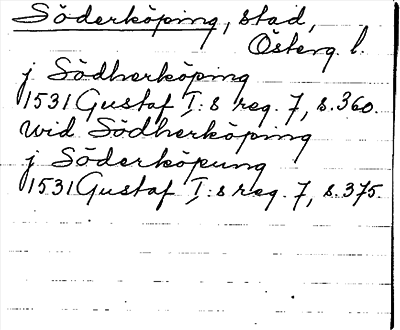 Söderköping, stad,
Österg. l.
j Södherköping
1531 Gustaf I:s reg. 7, s. 360.
wid Södherköping
j Söderköpung
1531 Gustaf I:s reg. 7, s. 375.